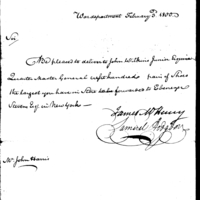 War department February 3d. 1800.
Sir,
Be pleased to deliver to John Wilkins Junior Esquire
Quarter Master General hundred pair of Shoes
the largest you have in Store to be forwarded to Ebenezer
Stevens Esq. in New York—
James McHenry
Samuel Hodgdon
Mr. John Harris